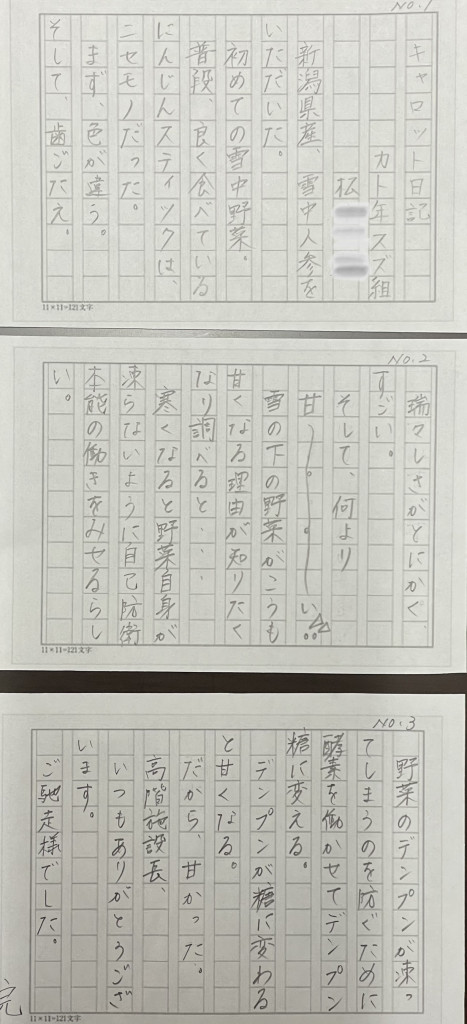 No.1
キャロット日記
カト年スズ組
松
新潟県産、雪中人参を
いただいた。
初めての雪中野菜。
普段、良く食べている
にんじんスティックは、
ニセモノだった。
まず、色が違う。
そして、歯ごたえ。
11×11=121文字
No.2
瑞々しさがとにかく、
すごい。
そして、何より
甘〜。〜い!!
雪の下の野菜がこうも
甘くなる理由が知りたく
なり調べると・・・
寒くなると野菜自身が
凍らないように自己防衛
本能の働きをみせるらし
い。
11×11=121文字
No.3
野菜のデンプンが凍っ
てしまうのを防ぐために
酵素を働かせてデンプン
糖に変える。
デンプンが糖に変わる
と甘くなる。
だから、甘かった。
高階施設長、
いつもありがとうござ
います。
ご馳走様でした。
完
11×11=121文字